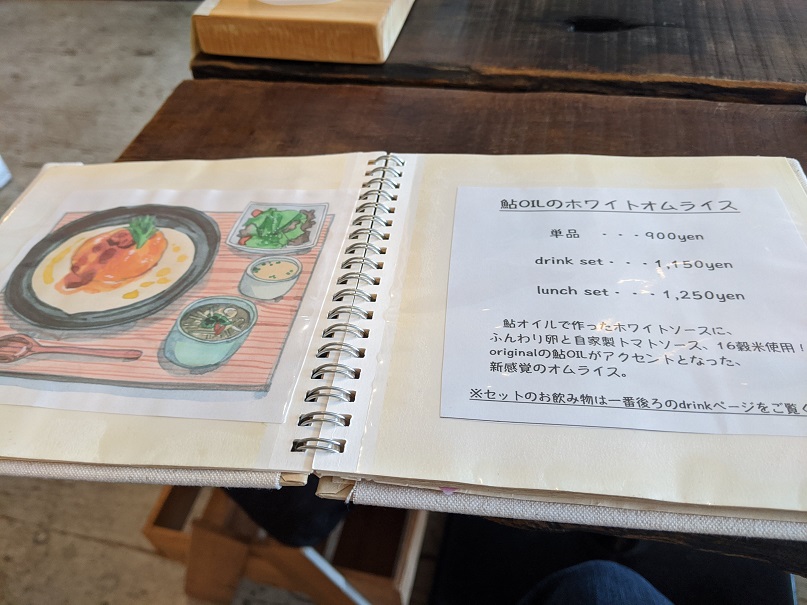 鮎OILのホワイトオムライス
単品 ・・・900yen
drink set・・・1,150yen
lunch set・・・1,250yen
鮎オイルで作ったホワイトソースに、
ふんわり卵と自家製トマトソース、16穀米使用！
originalの鮎OILがアクセントとなった、
新感覚のオムライス。
※セットのお飲み物は一番後ろのdrinkページをご覧く